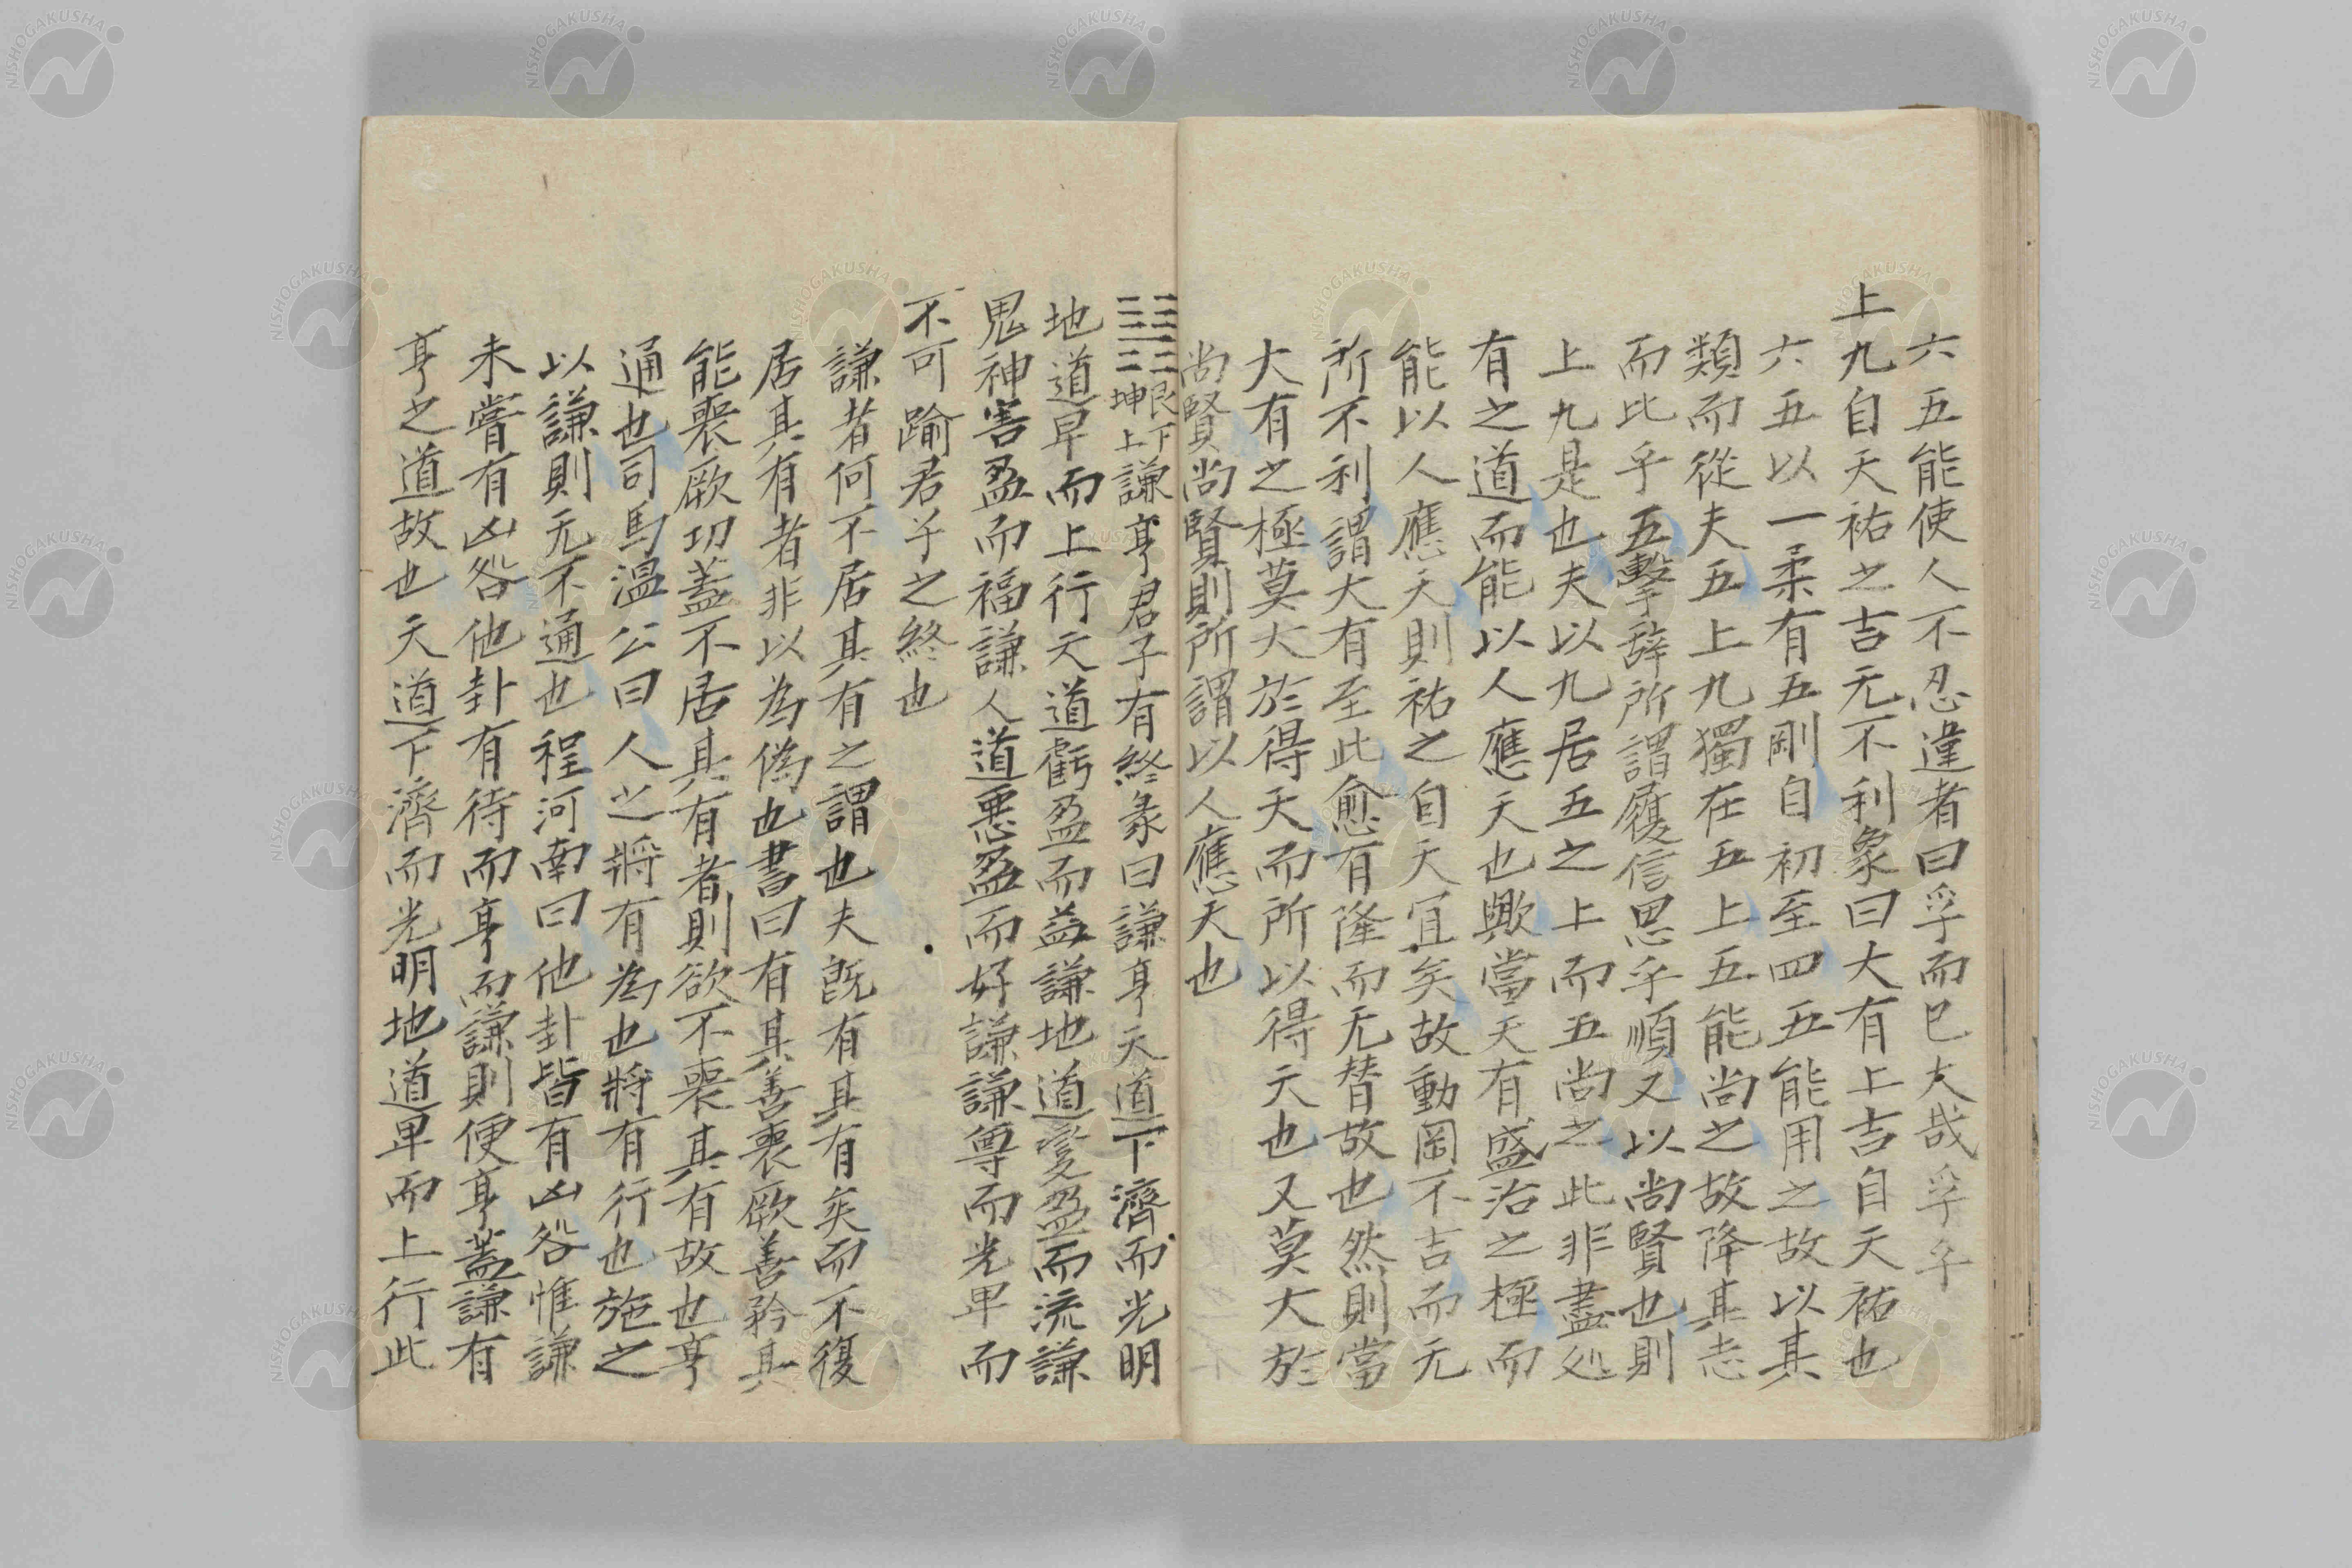 六五能使人不忍違者曰孚而已大哉孚乎
上九自天祐之吉无不利象曰大有上吉自天祐也
六五以一柔有五剛自初至四五能用之故以其
類而從夫五上九獨在五上五能尚之故降其志
而比乎五擊辭所謂履信思乎順又以尚賢也則
上九是也夫以九居五之上而五尚之此非盡処
有之道而能以人應天也歟當天有盛治之極而
能以人應天則祐之自天宜矣故動罔不吉而无
所不利謂大有至此愈有隆而无替故也然則當
大有之極莫大於得天而所以得天也又莫大於
尚賢尚賢則所謂以人應天也
䷎艮下坤上謙亨君子有終彖曰謙亨天道下濟而光明
地道卑而上行天道虧盈而益謙地道變盈而流謙
鬼神害盈而福謙人道惡盈而好謙謙尊而光卑而
不可踰君子之終也
謙者何不居其有之謂也夫既有其有矣而不復
居其有者非以為偽也書曰有其善喪厥善矜其
能喪厥功蓋不居其有者則欲不喪其有故也亨
通也司馬溫公曰人之將有為也將有行也施之
以謙則无不通也程河南曰他卦皆有凶咎惟謙
未嘗有凶咎他卦有待而亨而謙則便亨蓋謙有
亨之道故也天道下濟而光明地道卑而上行此
NISHOGAKUSHA